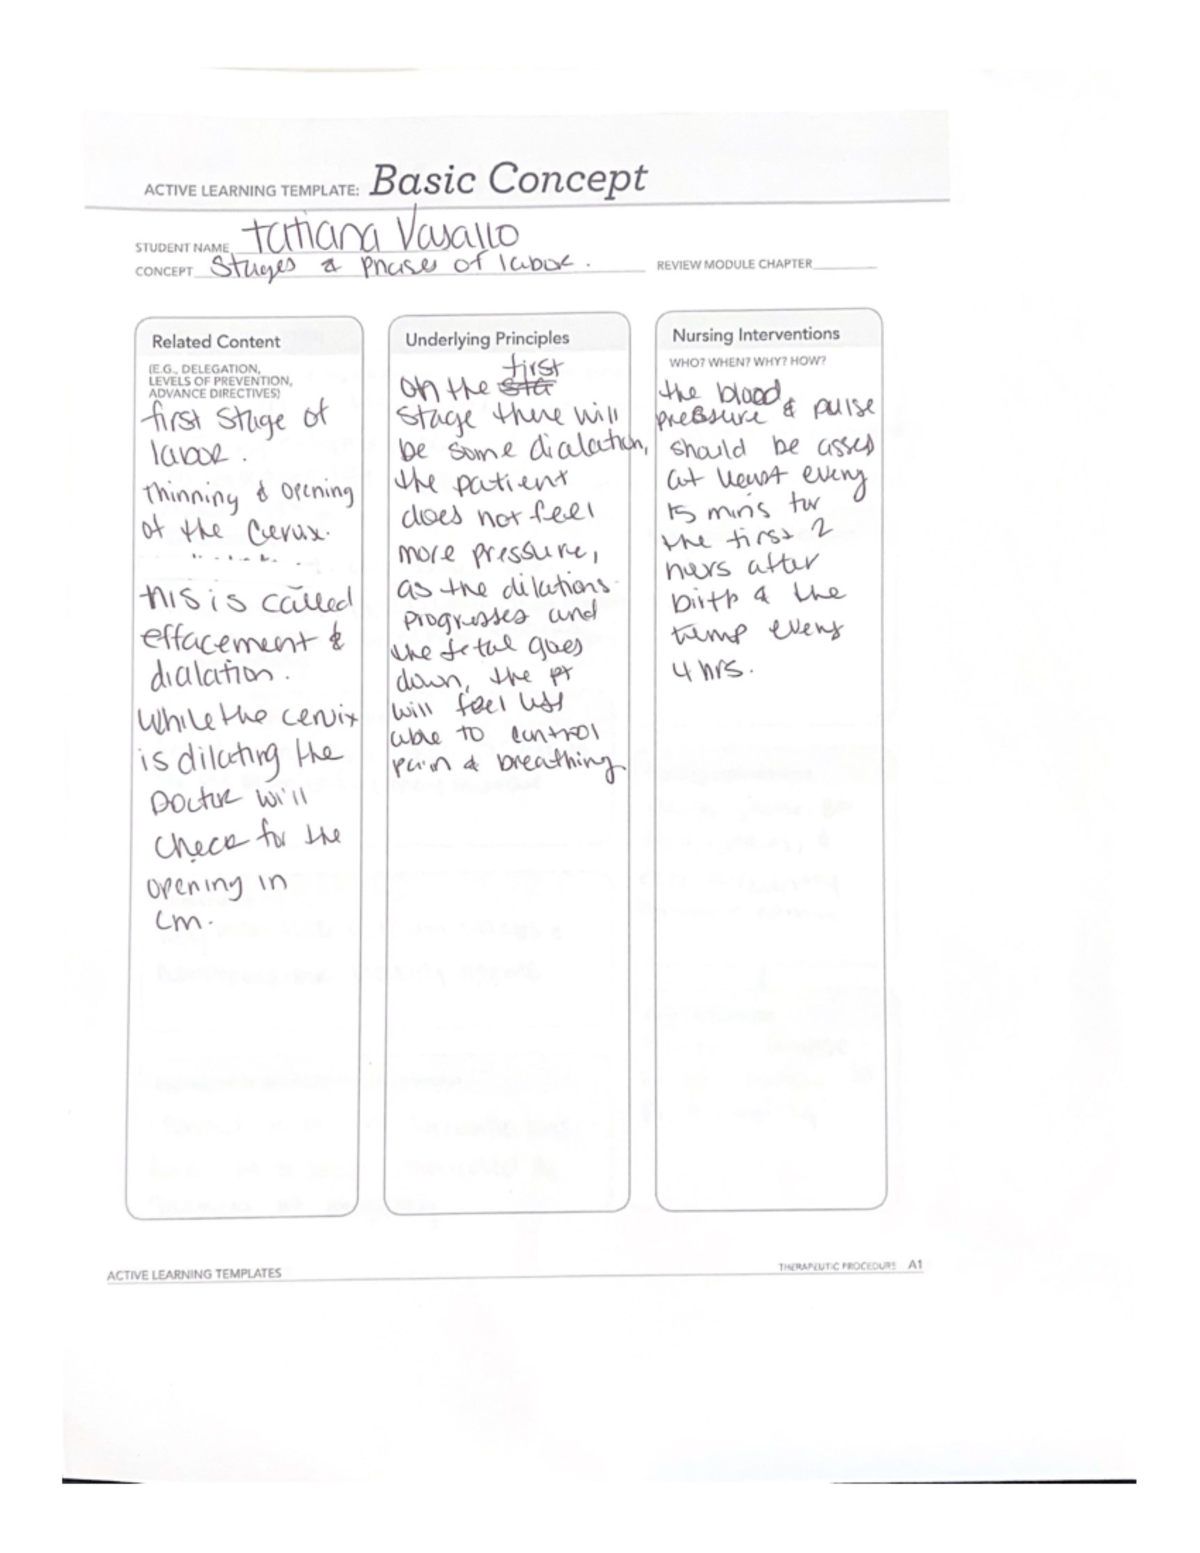 ACTIVE LEARNING TEMPLATE: Basic Concept
STUDENT NAME Tatiana Vasallo
CONCEPT Stages & Phases of labor.
REVIEW MODULE CHAPTER
Related Content
(E.G., DELEGATION,
LEVELS OF PREVENTION,
ADVANCE DIRECTIVES)
first stage of
labor.
Thinning & opening
of the Cervix.
this is called
effacement &
dialation.
While the cervix
is dilating the
Doctor will
check for the
opening in
cm.
Underlying Principles
first
On the sta
stage there will
be some dialation,
the patient
does not feel
more pressure,
as the dilations
progresses and
the fetal goes
down, the pt
will feel less
able to control
pain & breathing
Nursing Interventions
WHO? WHEN? WHY? HOW?
the blood
pressure & pulse
should be asses
at least every
15 mins for
the first 2
hours after
birth & the
temp every
4 hrs.
ACTIVE LEARNING TEMPLATES
THERAPEUTIC PROCEDURE A1